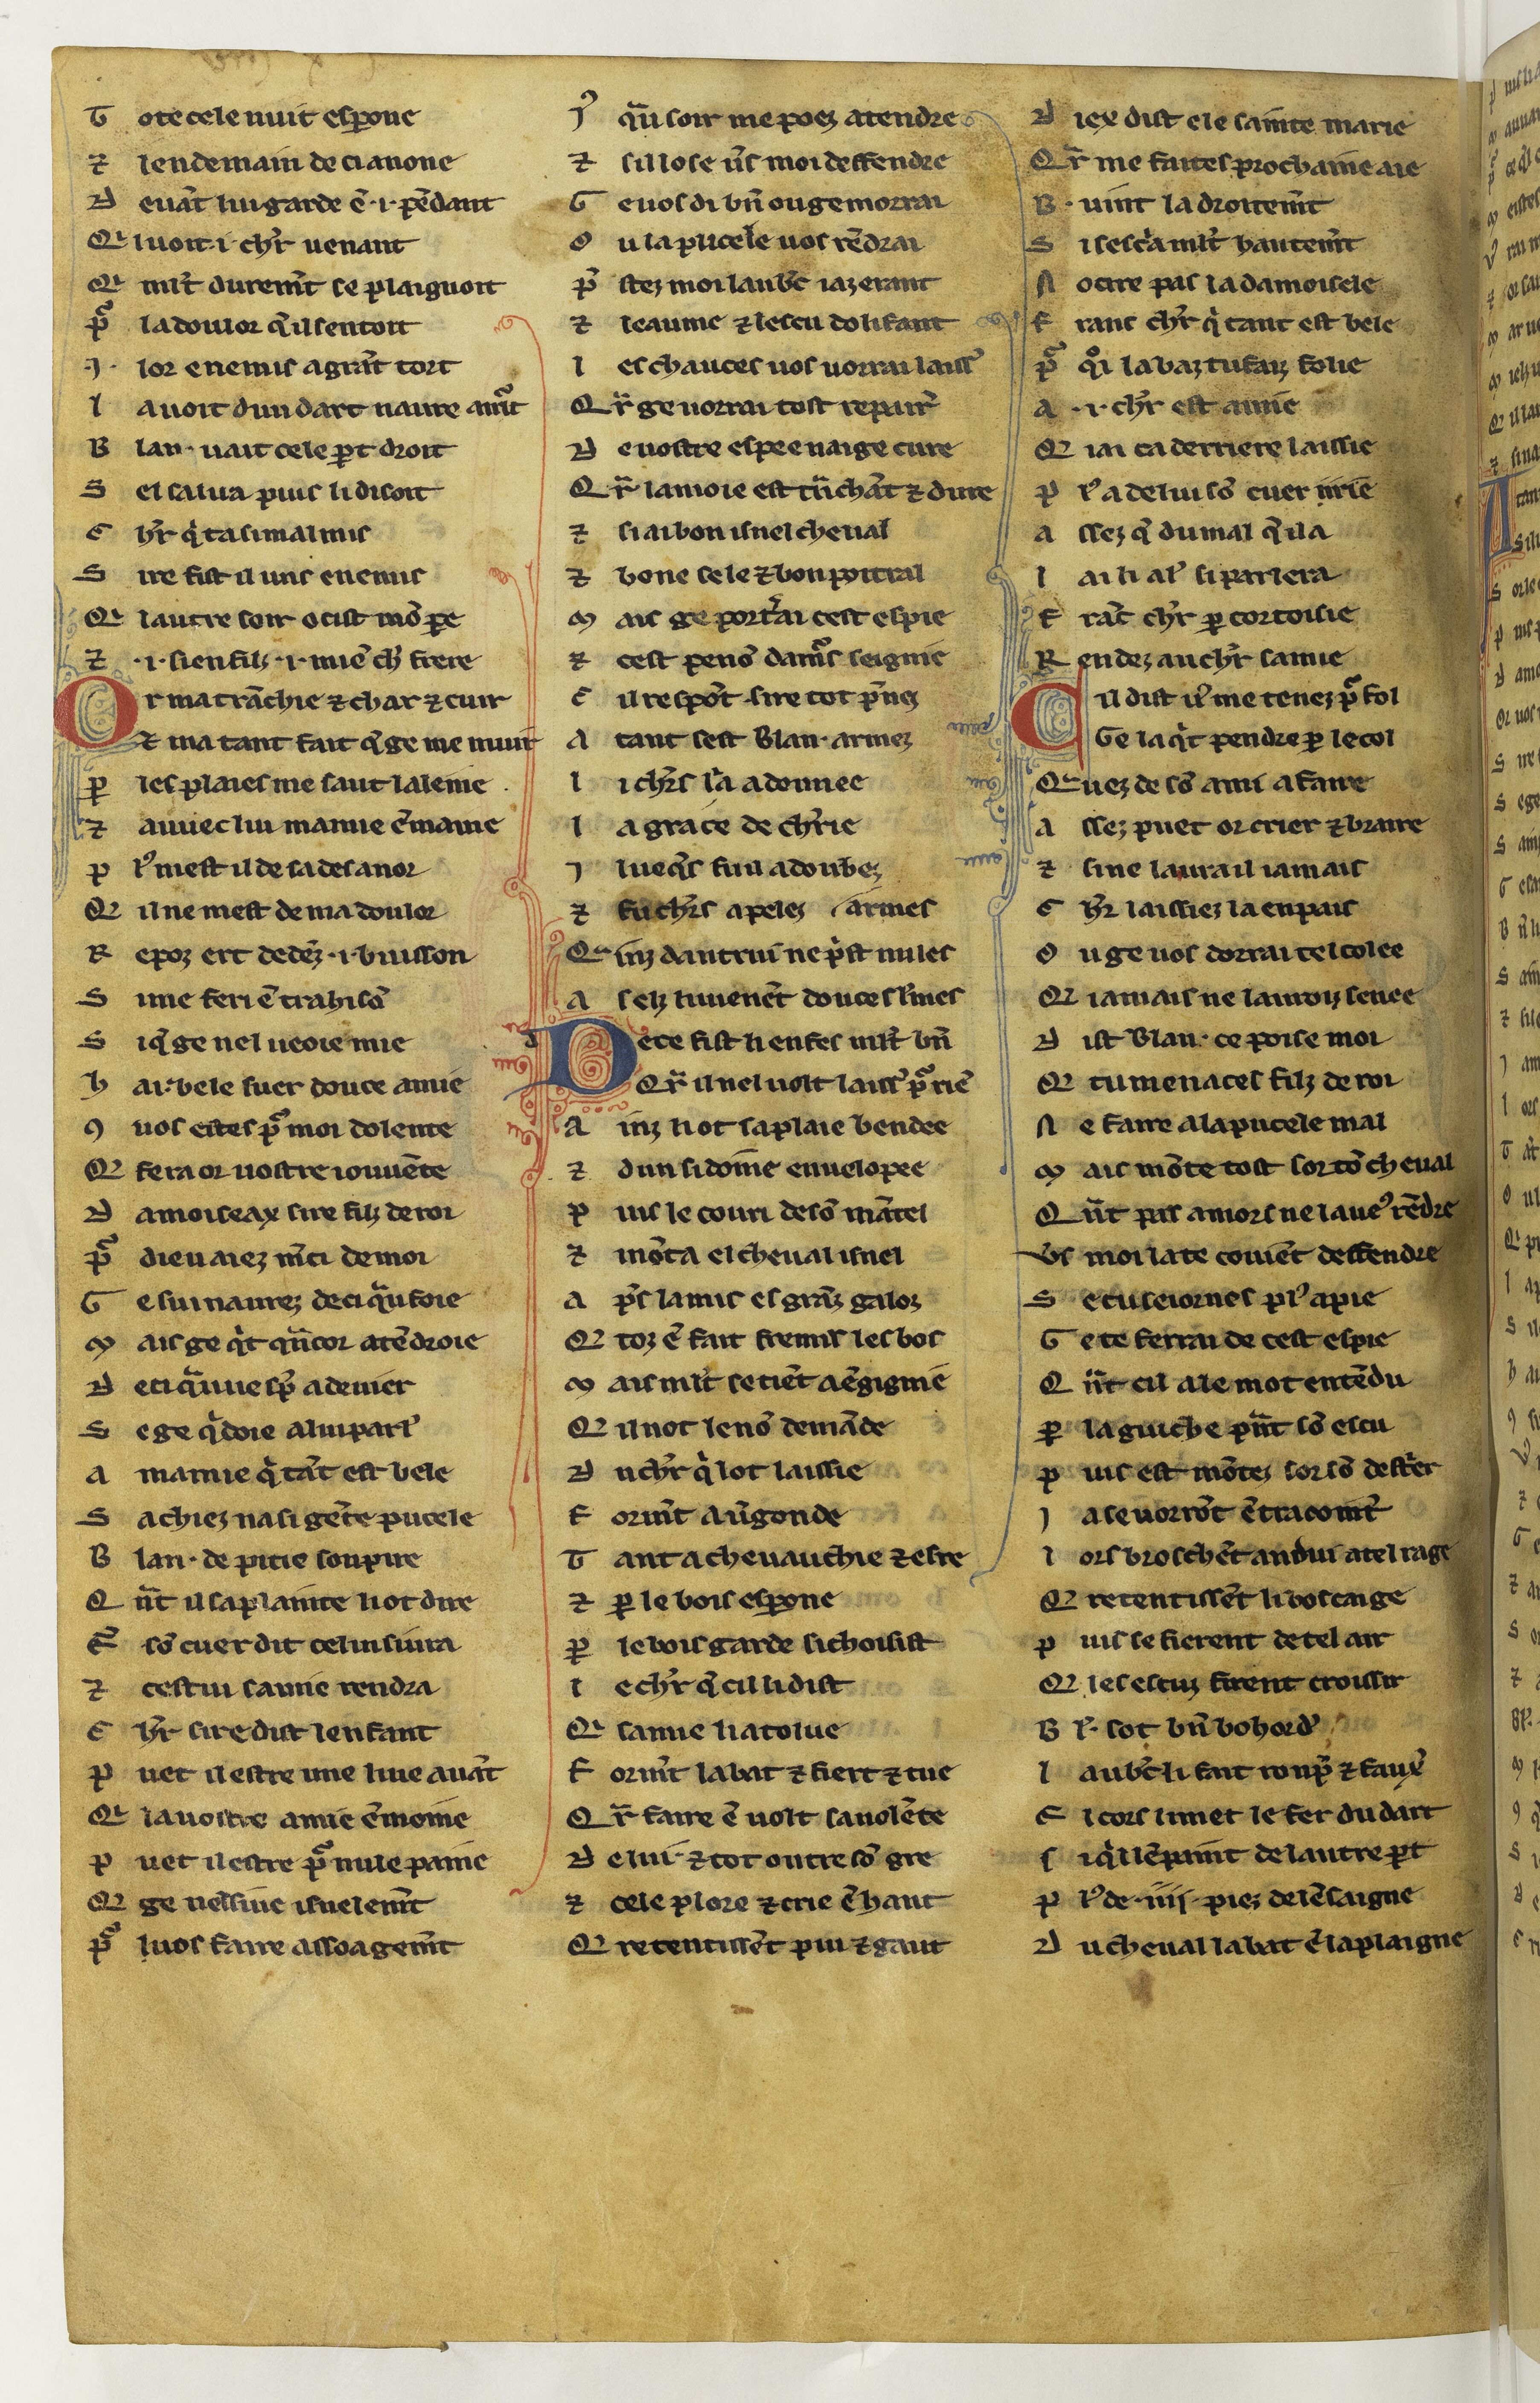 T ote cele nuit esꝑone
⁊ lendemain de ci anone
D euāt lui garde ē ·i· pēdant
Q i uoit ·i· chr̄ uenant
Q i mlt̄ durem̄t se plaignoit
pᷣ la doulor qͥl sentoit
·I· lor enemis a grāt tort
L auoit dun dart naure a mͬt
B lan· uait cele ꝑt droit
S el salua puis li disoit
C hr̄ qͥ ta si mal mis
S ire fist il uns enemis
Q i lautre soir ocist mō ꝑe
⁊ ·i· sien filz ·i· miē ch̄ frere
O r ma trāchie ⁊ char ⁊ cuir
Et ma tant fait qͥ ge me muir
ꝑ les plaies me saut laleine
⁊ auuec lui mamie ēmaine
P lꝰ mest il de sa desanor
Q il ne mest de ma doulor
R epoz ert dedēz ·i· buisson
S i me feri ē trahisō
S i qͥ ge nel ueoie mie
H ai· bele suer douce amie
ꝯ uos estes pᷣ moi dolente
Q fera or uostre iouuēte
D amoiseax sire filz de roi
pᷣ dieu aiez m̄ci de moi
G e sui naurez deci qͣu foie
M ais ge qͥt qͣncor atēdroie
D eci qͣ uiespr̄ a deuier
S e ge qͥdoie a lui parlꝰ
A mamie qͥ tāt est bele
S achiez na si gēte pucele
B lan· de pitie soupire
Q n̄t il sa plainte li ot dire
Eͫ sō cuer dit celui siura
⁊ cestui samie rendra
C hr̄ sire dist lenfant
P uet il estre une liue auāt
Q i la uostre amie ēmoine
P uet il estre pᷣ nule paine
Q ge uessise isnelem̄t
pᷣ luos faire assoagem̄t
Iꝰ qͣu soir me poez atendre
⁊ sil lose ūs moi deffendre
G e uos di bn̄ ou ge morrai
O u la pucele uos rēdrai
pr̄ stez moi laubc̄ iazerant
⁊ leaume ⁊ lescu dolifant
L es chauces uos uorrai laissꝰ
Qr̄ ge uorrai tost repairꝰ
D e uostre espee nai ge cure
Qr̄ la moie est tn̄chāt ⁊ dure
⁊ si ai bon isnel cheual
⁊ bone sele ⁊ bon poitral
M ais ge portr̄ai cest espie
⁊ cest penō damͬs seignie
C il respōt sire tot pr̄nez
A tant sest Blan· armez
L i chr̄s la a donnee
L a grace de chr̄ie
I lueqͥs fuil adoubez
⁊ fu chr̄s apelez armes
Q inz dautrui ne pͥst nules
A sez li uienēt douces lr̄mes
D e ce fist li enfes mlt̄ bn̄
Qr̄ il nel uolt laissꝰ pᷣ riē
A inz li ot sa plaie bendee
⁊ dun sidoine enuelopee
P uis le couri de sō mātel
⁊ mōta el cheual isnel
A pr̄s lamis es grāz galoz
Q toz ē fait fremir les bos
M ais mlt̄ se tiēt a ēgignie
Q il not le nō demāde
D u chr̄ qͥ lot laissie
F orm̄t a ūgonde
T ant a cheuauchie ⁊ esre
⁊ ꝑ le bois esꝑone
ꝑ le bois garde si choisist
L e chr̄ qͥ cil li dist
Q i samie li a tolue
F orm̄t la bat ⁊ fiert ⁊ tue
Qr̄ faire ē uolt sa uolēte
D e lui· ⁊ tot outre sō gre
⁊ cele plore ⁊ crie ē haut
Q retentissēt pui ⁊ gaut
D iex dist ele sainte marie
Qr̄ me faites prochaine aie
B · uint la droitem̄t
S i sescͥa mlt̄ hautem̄t
N ocire pas la damoisele
F ranc chr̄ qͥ tant est bele
pᷣ qͦi la baz tu faiz folie
A ·i· chr̄ est amie
Q iai ca derriere laissie
P lꝰ a de lui sō cuer irie
A ssez qͥ du mal qͥl a
I ai li alꝰ si parlera
F rāc chr̄ ꝑ cortoisie
R endez au chr̄ samie
C il dist uꝰ me tenez pᷣ fol
Ge la qͥt pendre ꝑ le col
Q uez de sō ami a faire
A ssez puet or crier ⁊ braire
⁊ si ne laura il iamais
C hr̄ laissiez la en pais
O u ge uos dorrai tel colee
Q iamais ne lauroiz senee
D ist Blan· ce poise moi
Q tu menaces filz de roi
N e faire a la pucele mal
M ais mōte tost sor tō cheual
Q n̄t par amors ne la ueꝰ rēdre
Vs moi la te couiēt deffendre
S e tu seiornes plꝰ a pie
G e te ferrai de cest espie
Q n̄t cil a le mot entēdu
ꝑ la guiche pn̄t sō escu
P uis est mōtez sor sō destr̄er
I a se uorrōt ētracomt̄
L ors broschēt andui a tel rage
Q retentissēt li boscage
P uis se fierent de tel air
Q les escuz firent croissir
B lꝰ· sot bn̄ bohordꝰ
L aubc̄ li fait ronpꝰ ⁊ fauxꝰ
E l cors li met le fer du dart
S i qͥl lēpaint de lautre ꝑt
P lꝰ de ·iiij· piez de lēsaigne
D u cheual labat ē la plaigne